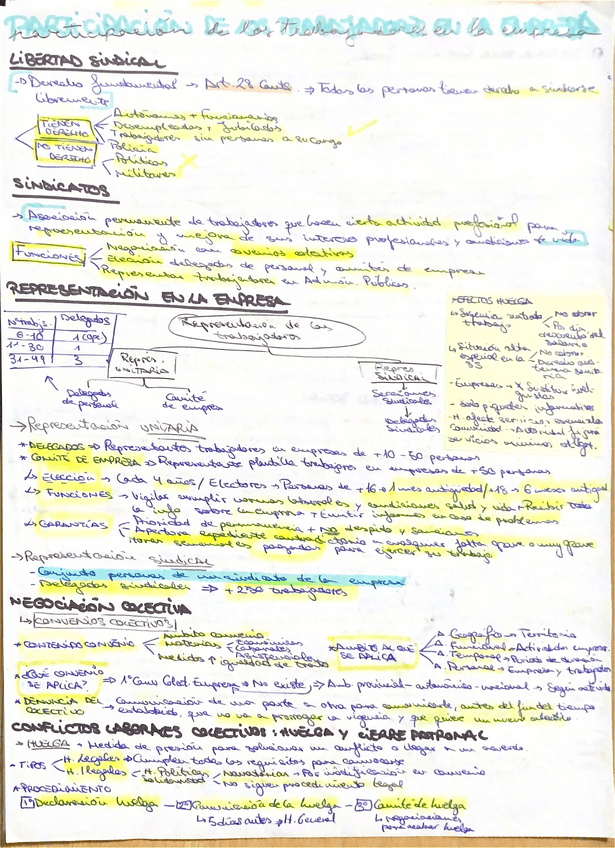 participación de los trabajadores en la empresa
LIBERTAD SINDICAL
→ Derecho fundamental → Art. 28 Const. → Todas las personas tienen derecho a sindicarse
libremente
TIENEN DERECHO
Autónomos + Funcionarios
Desempleados y Jubilados
Trabajadores sin personas a su cargo
NO TIENEN DERECHO
Policía
Políticos
Militares
SINDICATOS
→ Asociación permanente de trabajadores que hacen cierta actividad profesional para
representación y mejora de sus intereses profesionales y condiciones de vida
Funciones
Negociación con convenios colectivos
Elección delegados de personal y comités de empresa
Representar trabajadores en Admón. Públicas.
REPRESENTACIÓN EN LA EMPRESA
NºTrabjs. Delegados
6-10 1 (opc)
11-30 1
31-49 3
Representación de los
trabajadores
Repres.
UNITARIA
Delegados
de personal
Comité
de empresa
Repres.
SINDICAL
Secciones
Sindicales
Delegados
Sindicales
*EFECTOS HUELGA
- Empresarios →
- Solo piquetes informativos
- H. afect servicios esenciales
servicios mínimos obligat.
→ Representación UNITARIA
* DELEGADOS → Representantes trabajadores en empresas de +10 - 50 personas
* COMITÉ DE EMPRESA → Representante plantilla trabajdrs en empresas de +50 personas
↳ ELECCIÓN → Cada 4 años / Electores → Personas de +16 + 1 mes antigüedad / +18 → 6 meses antigüed
↳ FUNCIONES → Vigilar cumplir normas laborales y condiciones salud y vida + Recibir toda
la info sobre la empresa + Emitir informes en caso de problemas
↳ GARANTÍAS
Prioridad de permanencia + NO despido y sanciones
Apertura expediente contradictorio en cualquier falta grave o muy grave
Horas semanales pagadas para ejercer su trabajo
→ Representación sindical
- Conjunto personas de un sindicato de la empresa
- Delegados sindicales → + 250 trabajadores
NEGOCIACIÓN COLECTIVA
↳ CONVENIOS COLECTIVOS
* CONTENIDO CONVENIO
Ámbito convenio
Materias
Económicas
Laborales
Asistenciales
Medidas ↑ igualdad de trato
* ÁMBITO AL QUE SE APLICA
A. Geográfico → Territorio
A. Funcional → Actividades empresa.
A. Temporal → Periodo de duración
A. Personal → Empresas y trabajadores
* ¿QUÉ CONVENIO SE APLICA? → 1º Conv. Colect. Empresa → No existe → Amb provincial - autonómico - nacional → Según actividad
* DENUNCIA DEL COLECTIVO → Comunicación de una parte a otra para comunicarle, antes del fin del tiempo
establecido, que no va a prorrogar la vigencia y que quiere un nuevo
CONFLICTOS LABORALES COLECTIVOS: HUELGA Y CIERRE PATRONAL
→ HUELGA → Medida de presión para solucionar un conflicto o llegar a un acuerdo.
* TIPOS
H. Legales → Cumplen todos los requisitos para convocarse
H. Ilegales
H. Políticas
Solidaridad
Novatorias → Por modificación en convenio
No siguen procedimiento legal
* PROCEDIMIENTO
1º Declaración huelga — 2º Comunicación de la huelga — 3º Comité de huelga
↳ 5 días antes → H. General
↳ negociaciones
para acabar huelga